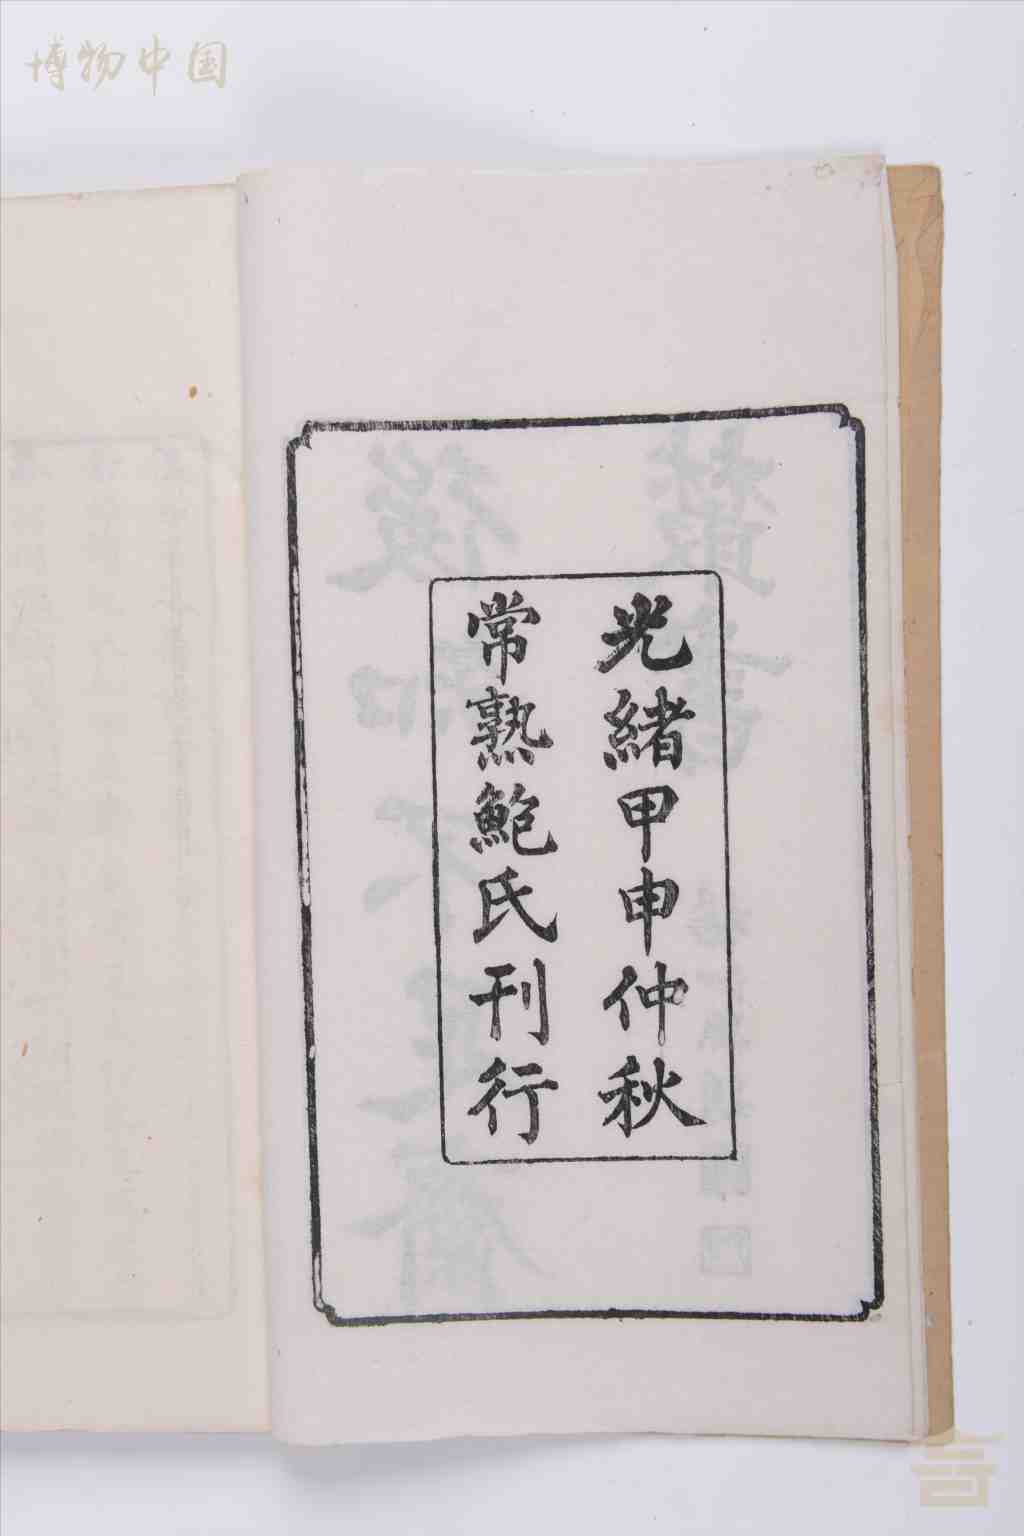 博物中国
光緒甲申仲秋
常熟鮑氏刊行